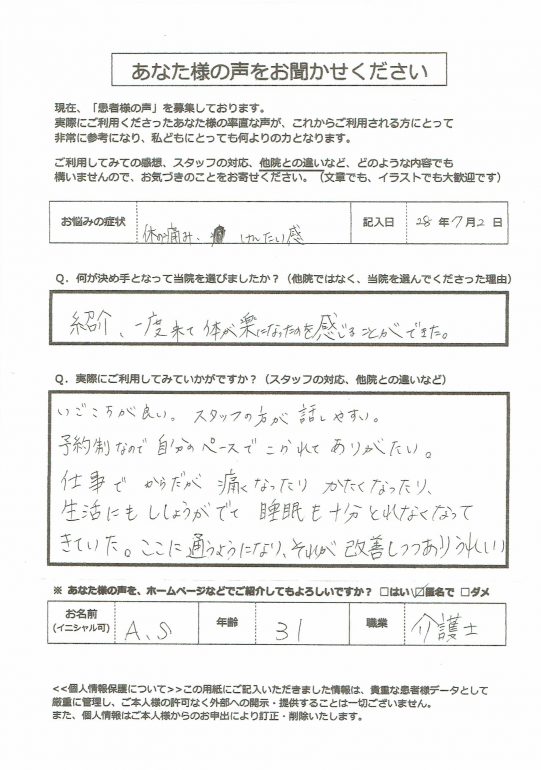 あなた様の声をお聞かせください
現在、「患者様の声」を募集しております。
実際にご利用くださったあなた様の率直な声が、これからご利用される方にとって
非常に参考になり、私どもにとっても何よりの力となります。
ご利用してみての感想、スタッフの対応、他院との違いなど、どのような内容でも
構いませんので、お気づきのことをお寄せください。（文章でも、イラストでも大歓迎です）
お悩みの症状 体の痛み、 けんたい感 記入日 28年7月2日
Q．何が決め手となって当院を選びましたか？（他院ではなく、当院を選んでくださった理由）
紹介、一度来て体が楽になったのを感じることができた。
Q．実際にご利用してみていかがですか？（スタッフの対応、他院との違いなど）
いごこちが良い。スタッフの方が話しやすい。
予約制なので自分のペースでこられてありがたい。
仕事でからだが痛くなったりかたくなったり、
生活にもししょうがでて睡眠も十分とれなくなって
きていた。ここに通うようになり、それが改善しつつありうれしい
※ あなた様の声を、ホームページなどでご紹介してもよろしいですか？ □はい ☑匿名で □ダメ
お名前 A.S 年齢 31 職業 介護士
(イニシャル可)
<<個人情報保護について>>この用紙にご記入いただきました情報は、貴重な患者様データとして
厳重に管理し、ご本人様の許可なく外部への開示・提供することは一切ございません。
また、個人情報はご本人様からのお申出により訂正・削除いたします。